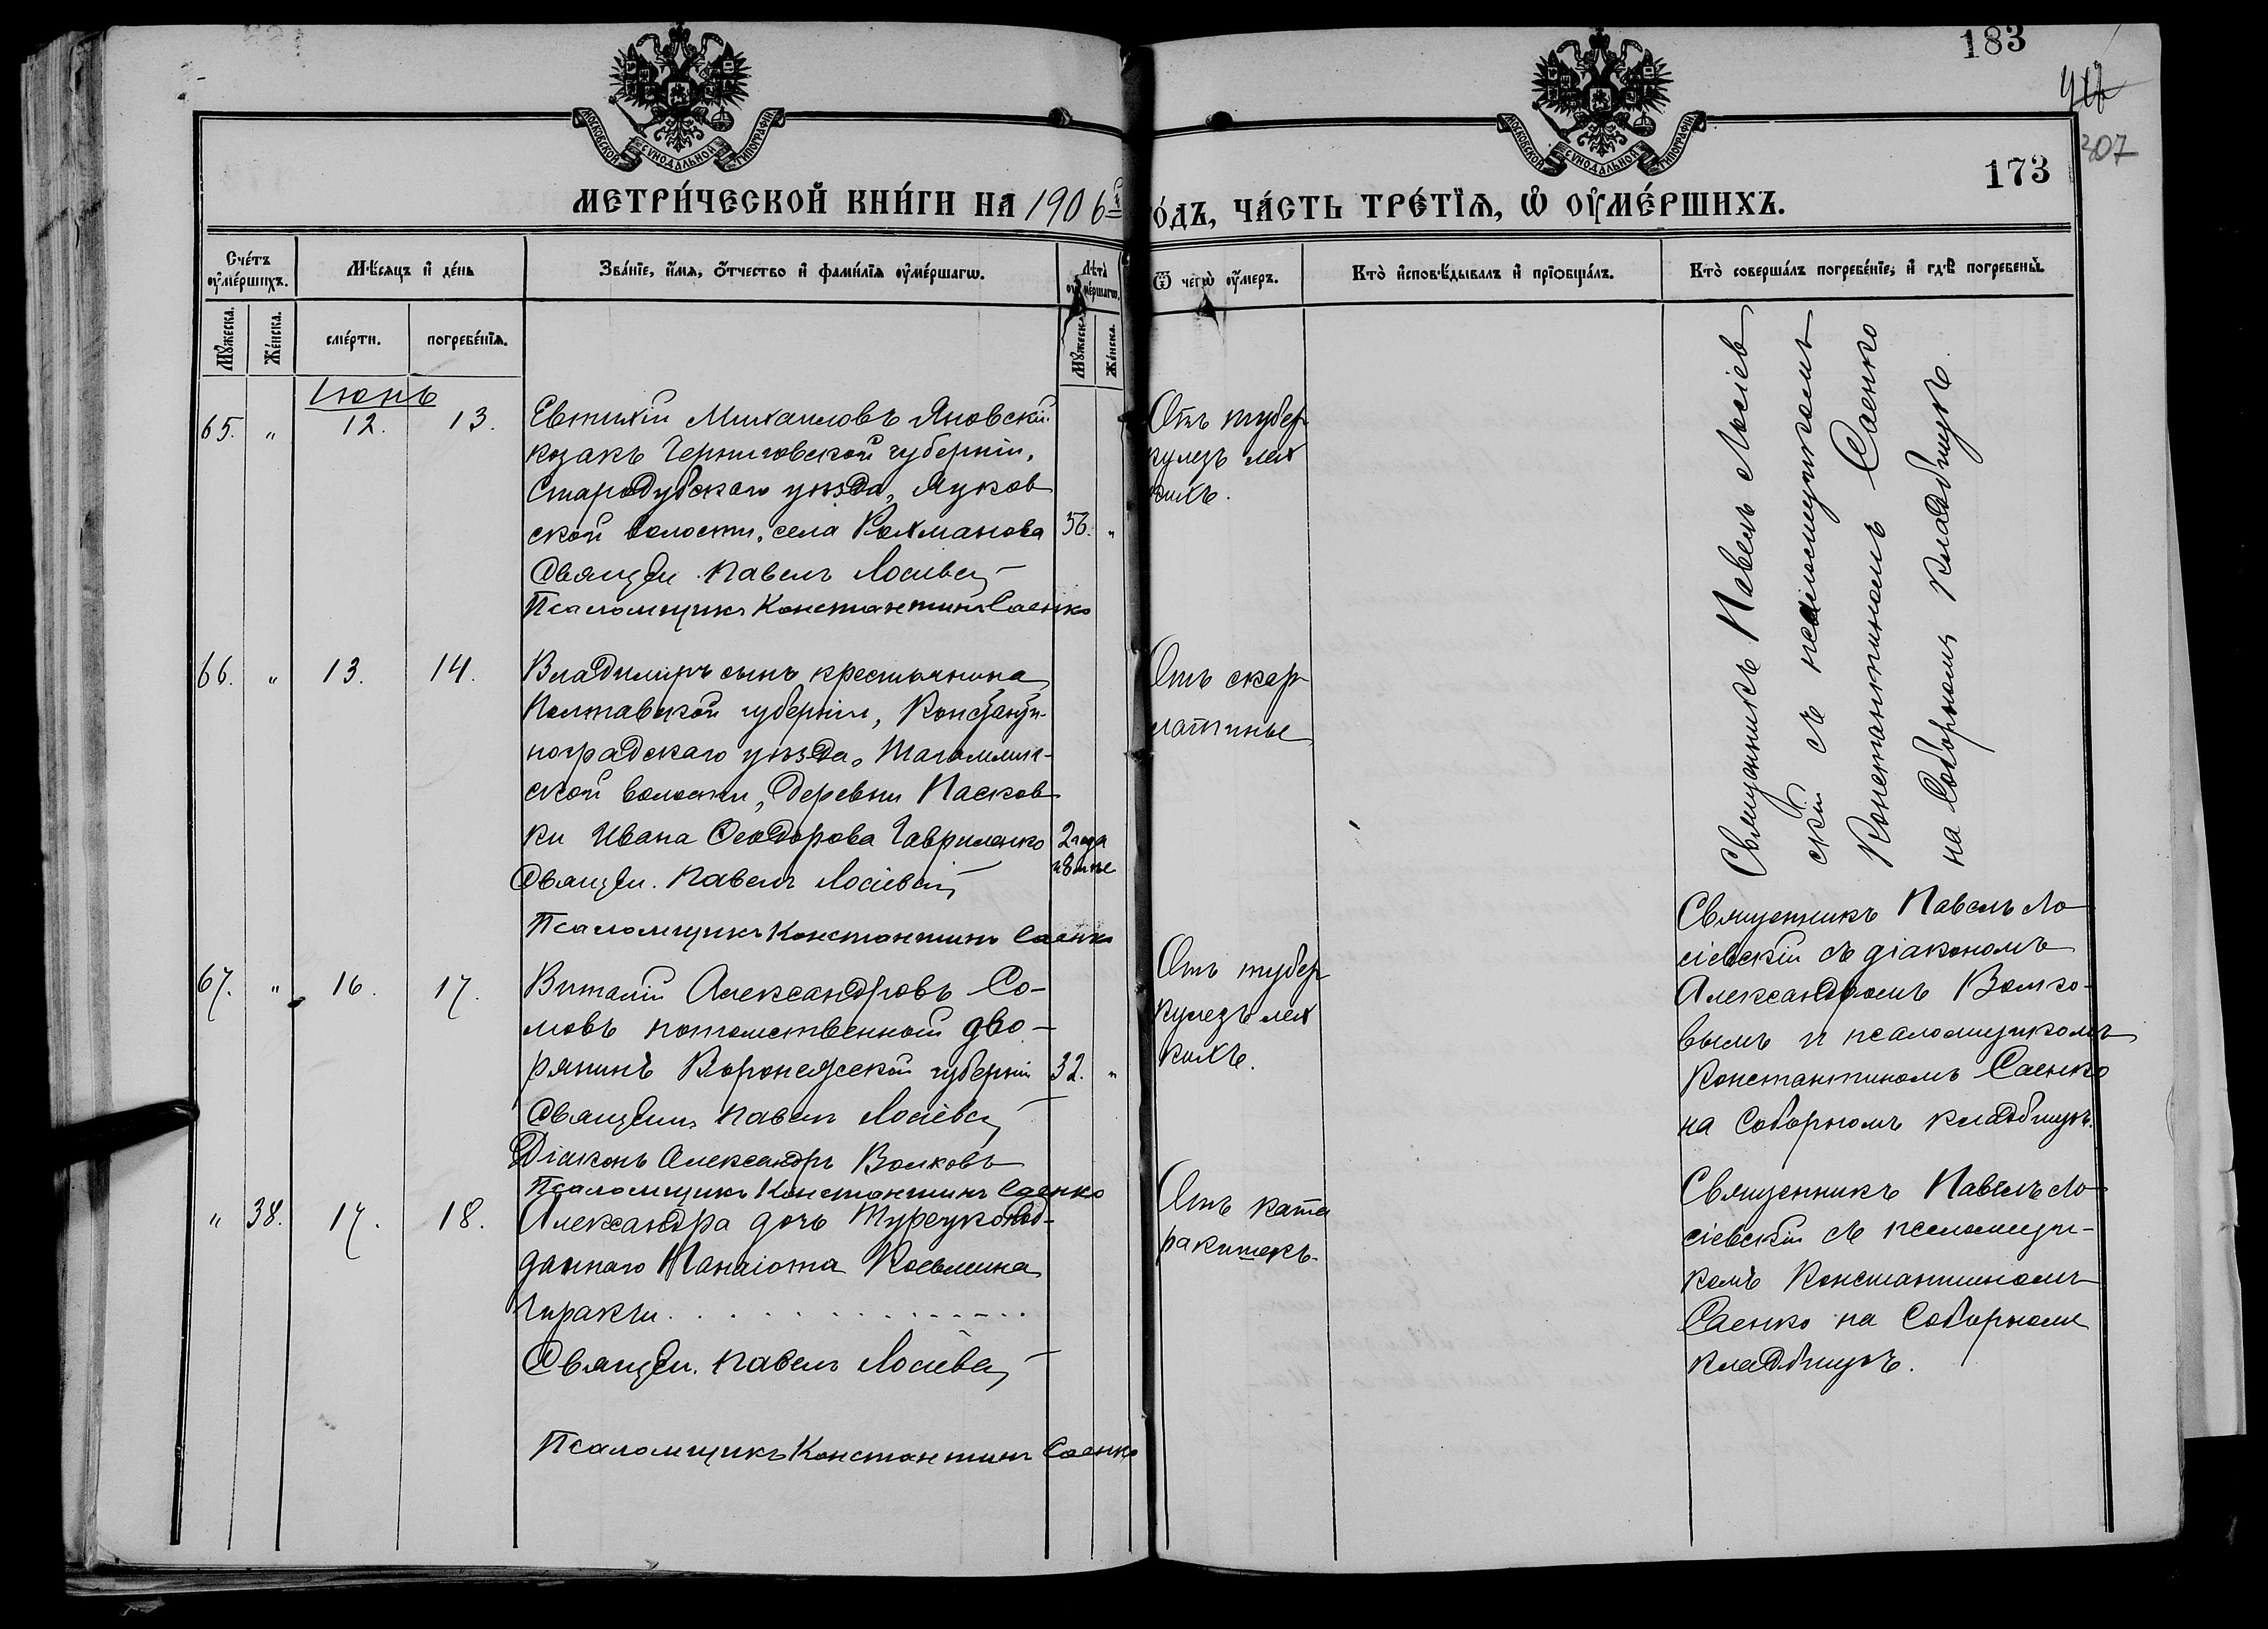 183
307
173
МОСКОВСКОЙ СѴНОДАЛЬНОЙ ТИПОГРАФІИ
МОСКОВСКОЙ СѴНОДАЛЬНОЙ ТИПОГРАФІИ
МЕТРИ́ЧЕСКОЙ КНИ́ГИ НА 1906 й
О́ДЪ, ЧА́СТЬ ТРЕ́ТЇѦ, Ѡ ОУМЕ́РШИХЪ.
Сче́тъ оуме́ршихъ.
Мѣ́сяцъ и де́нь
Зва́нїе, и́мя, о́тчество и фами́лїя оуме́ршагѡ.
Лѣта̀ оуме́ршагѡ.
Ѿ чегѡ̀ оу́меръ.
Кто̀ исповѣ́дывалъ и прїобща́лъ.
Кто̀ соверша́лъ погребе́нїе, и гдѣ̀ погребены̀.
Му́жеска.
Же́нска.
сме́рти.
погребе́нїя.
Му́жеска.
Же́нска.
Іюнь
65. " 12. 13. Евтихій Михаиловъ Яновскій
козакъ Черниговской губерніи,
Стародубскаго уѣзда, Лужков
ской волости, села Рохманова 56. "
Священ. Павелъ Лосіевскій
Псаломщикъ Константинъ Саенко
Отъ тубер
кулезъ лех
кихъ.
Священникъ Павелъ Лосіев
скій съ псаломщикомъ
Константиномъ Саенко
на Соборномъ кладбищѣ.
66. " 13. 14. Владимиръ сынъ крестьянина
Полтавской губерніи, Константи-
ноградскаго уѣзда,
ской волости, деревни Пасков
ки Ивана Ѳеодорова Гавриленко 2 года
Священ. Павелъ Лосіевскій
Псаломщикъ Константинъ Саенко
Отъ скар
латины
67. " 16. 17. Виталій Александровъ Со-
мовъ потомственный дво-
рянинъ Воронежской губерніи 32. "
Священникъ Павелъ Лосіевскій
Діаконъ Александръ Волковъ
Псаломщикъ Константинъ Саенко
Отъ тубер
кулезъ лех
кихъ.
Священникъ Павелъ Ло
сіевскій съ діакономъ
Александромъ Волко-
вымъ и псаломщикомъ
Константиномъ Саенко
на Соборномъ кладбищѣ.
" 38. 17. 18. Александра дочь Турецкопод-
даннаго Панаіота Косьмина
Чиракчи
Священ. Павелъ Лосіевскій
Псаломщикъ Константинъ Саенко
Отъ ката
Священникъ Павелъ Ло
сіевскій съ псаломщи-
комъ Константиномъ
Саенко на Соборномъ
кладбищѣ.